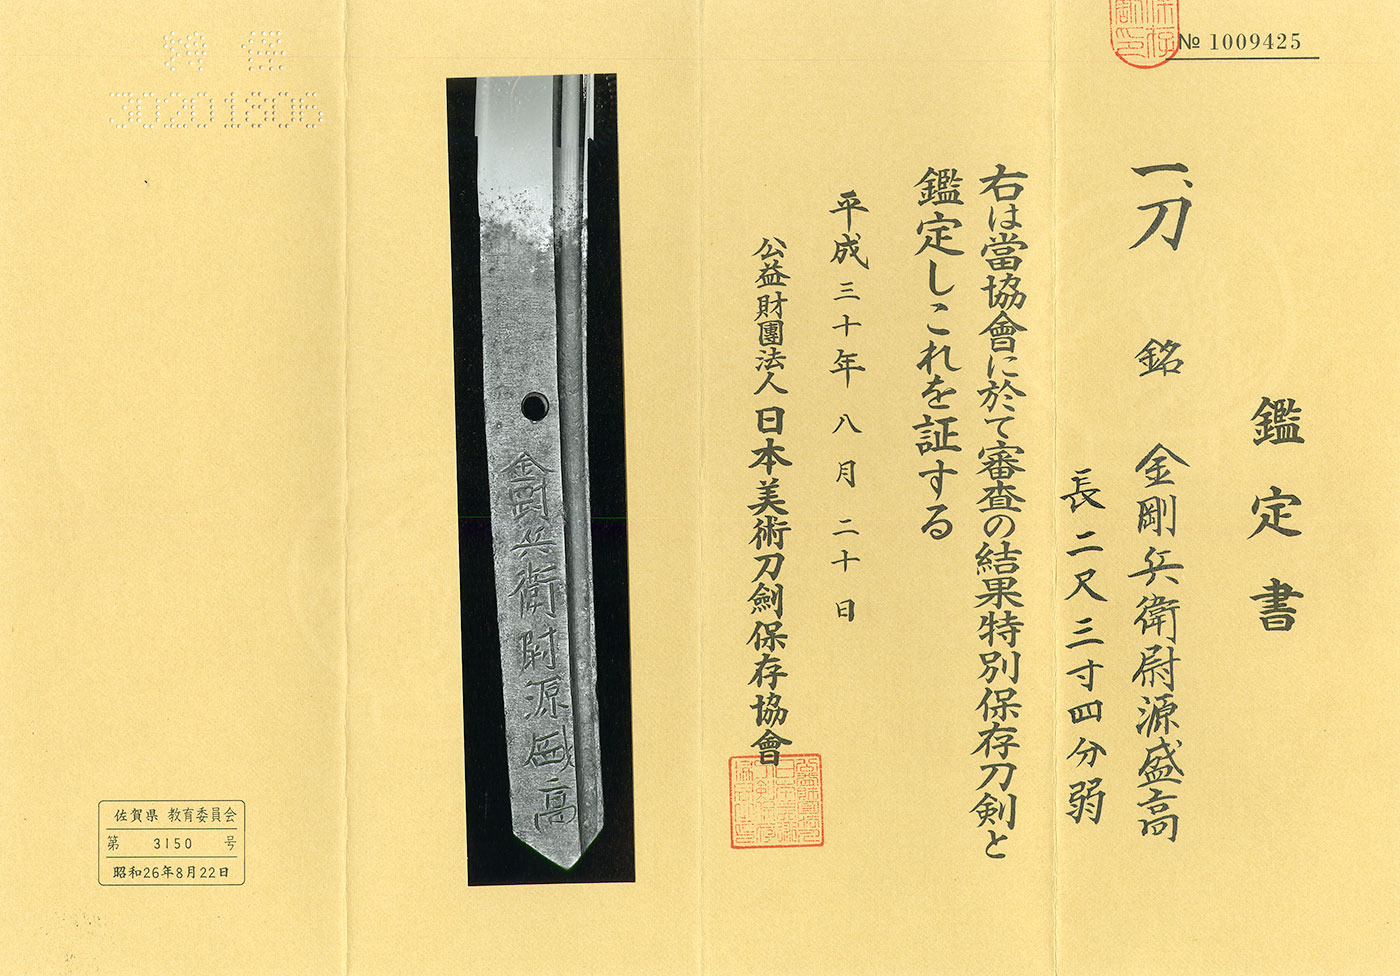 № 1009425
鑑定書
一、刀 銘 金剛兵衛尉源盛高
長二尺三寸四分弱
右は當協會に於て審査の結果特別保存刀剣と
鑑定しこれを証する
平成三十年八月二十日
公益財團法人 日本美術刀劍保存協會
金剛兵衛尉源盛高
30201806
佐賀県 教育委員会
第 3150 号
昭和26年8月22日